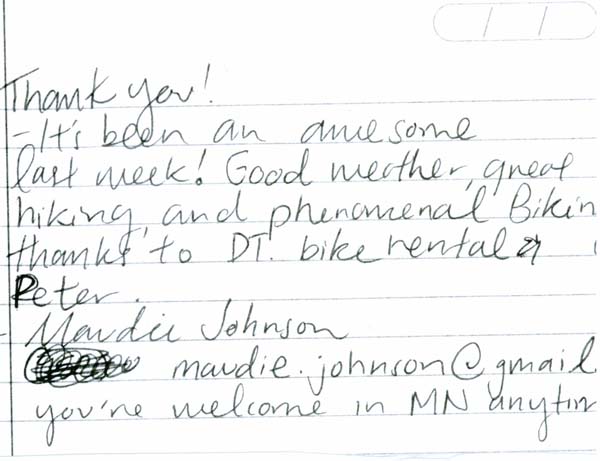 Thank you!
- It's been an awesome
last week! Good weather, great
hiking, and phenomenal Bikin
thanks to DT. bike rental &
Peter.
- Maudie Johnson
maudie.johnson@gmail
you're welcome in MN anytim